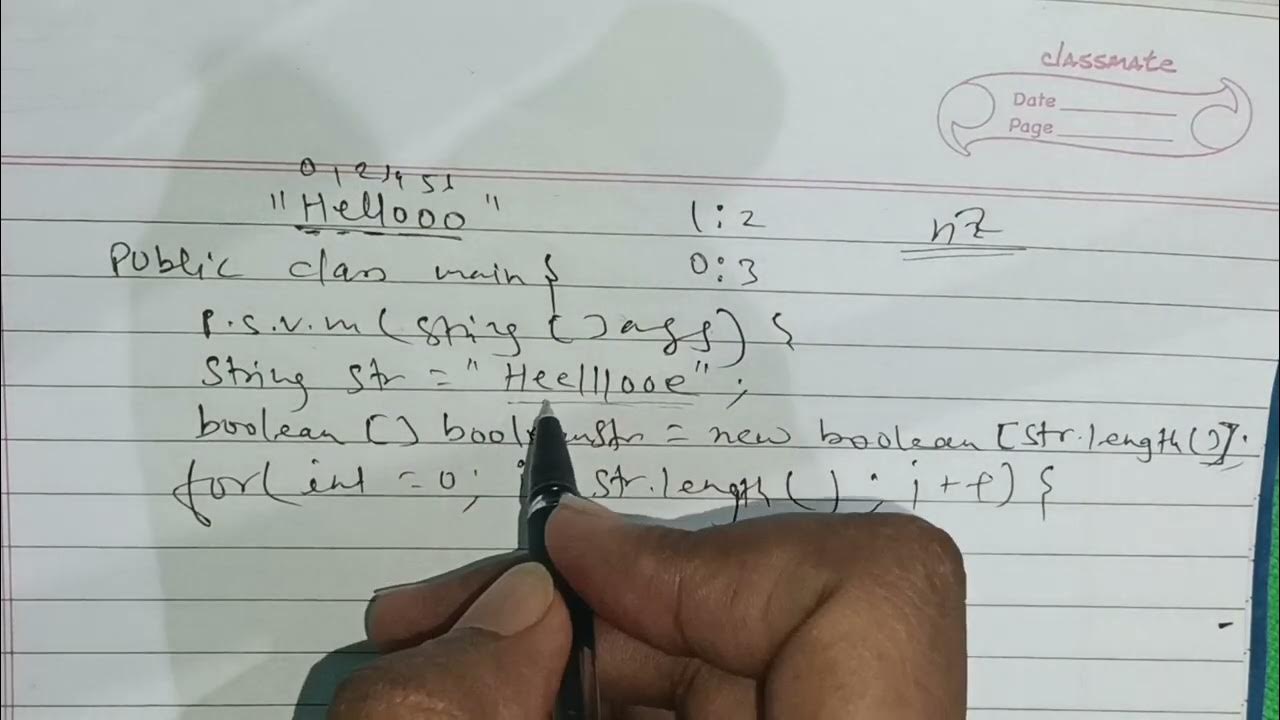 classmate
Date
Page
0 1 2 3 4 5 6
"Hellooo"
1:2
0:3
n2
Public class main {
P.s.v.m(String []args) {
String str = "Heelllooe";
boolean [] = new boolean [str.length()];
for(int = 0; str.length(); i++) {